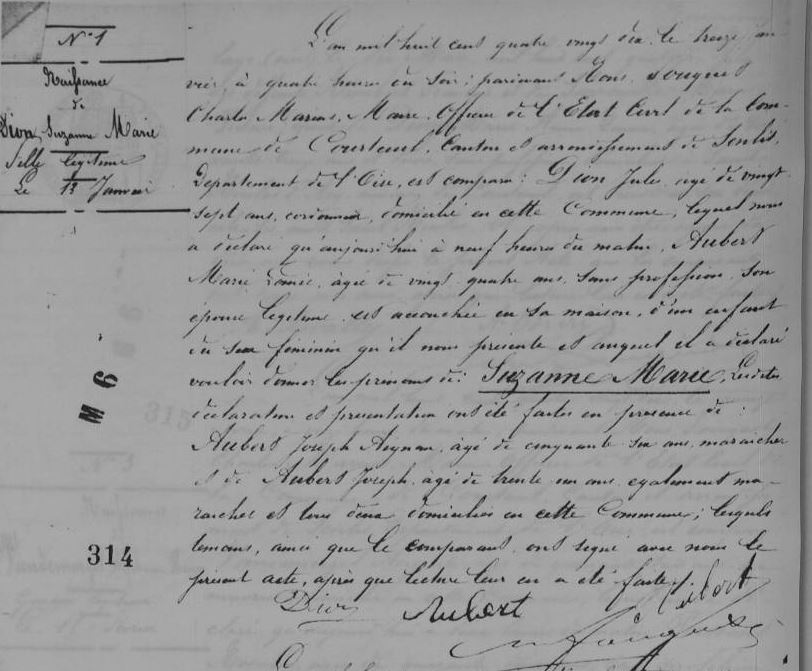 N° 1
Naissance
de
Dion Suzanne Marie
fille légitime
Le 13 Janvier
L'an mil huit cent quatre vingt dix, le treize jan-
vier, à quatre heures du soir; pardevant Nous,
Charles Marius, Maire, Officier de l'Etat Civil de la Com-
mune de Courteuil, Canton et arrondissement de Senlis,
Département de l'Oise, est comparu: Dion Jules, agé de vingt
sept ans, cordonnier, domicilié en cette Commune, lequel nous
a déclaré qu'aujourd'hui à neuf heures du matin, Aubert
Marie, âgée de vingt quatre ans, sans profession, son
épouse légitime, est accouchée en sa maison, d'un enfant
du sexe féminin qu'il nous présente et auquel il a déclaré
vouloir donner les prénoms de: Suzanne Marie. Lesdites
déclaration et présentation ont été faites en présence de:
Aubert Joseph Aignan, âgé de cinquante six ans, maraîcher
et de Aubert Joseph, âgé de trente un ans, également ma-
raîcher et tous deux domiciliés en cette Commune; lesquels
témoins, ainsi que le comparant, ont signé avec nous le
présent acte, après que lecture leur en a été faite.
Dion Aubert Aubert
M 6
314